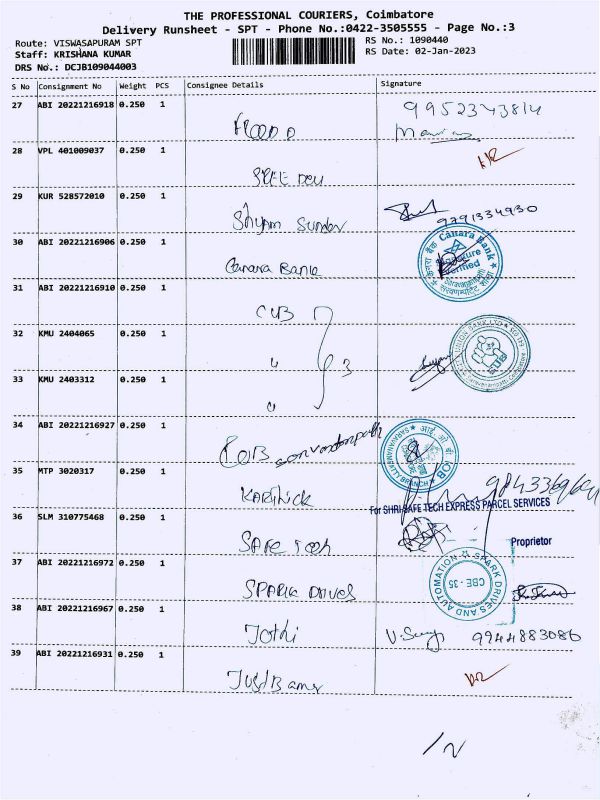 THE PROFESSIONAL COURIERS, Coimbatore
Delivery Runsheet - SPT - Phone No.:0422-3505555 - Page No.:3
Route: VISWASAPURAM SPT
Staff: KRISHANA KUMAR
DRS No.: DCJB109044003
RS No.: 1090440
RS Date: 02-Jan-2023
S No Consignment No Weight PCS Consignee Details Signature
27 ABI 20221216918 0.250 1 9952343814
28 VPL 401009037 0.250 1
29 KUR 528572010 0.250 1 Shyam Sunder 9791334930
30 ABI 20221216906 0.250 1 Canara Bank
Canara Bank
केनरा बैंक
Signature Verified
31 ABI 20221216910 0.250 1 CUB
32 KMU 2404065 0.250 1 " 3
33 KMU 2403312 0.250 1 "
34 ABI 20221216927 0.250 1
IOB
35 MTP 3020317 0.250 1 Karthick
For SHRI SAFE TECH EXPRESS PARCEL SERVICES
36 SLM 310775468 0.250 1 Safe Tech
Proprietor
37 ABI 20221216972 0.250 1 SPARK DRIVES
SPARK DRIVES AND AUTOMATION
CBE - 35
38 ABI 20221216967 0.250 1 Jothi 9944883086
39 ABI 20221216931 0.250 1